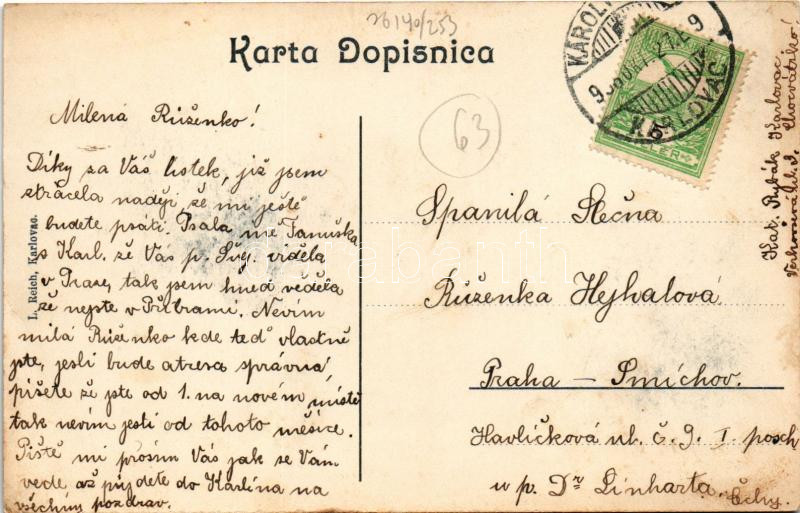 26140/253
Karta Dopisnica
63
KAROLY
KARLOVAC
5
Milená Růženko!
Díky za Váš lístek, již jsem
ztrácela naději, že mi ještě
budete psáti. Psala mě Tanuška
s Karl. že Vás p. Švg. viděla
v Praze, tak jsem hned věděla
že nejste v Příbrami. Nevím
milá Růženko kde teď vlastně
jste, jesli bude atresa správná
píšete že jste od 1. na novém místě
tak nevím jesti od tohoto měsíce.
Piště mi prosím Vás jak se Vám
vede až půjdete do Karlína na
všechny pozdrav.
L. Reich, Karlovac.
Spanilá Slečna
Růženka Hejhalová
Praha – Smíchov.
Havlíčková ul. č. 9 I. posch
u p. Dr Linharta. Čechy.
Kat. Rybák Karlovac
Chorvátsko!